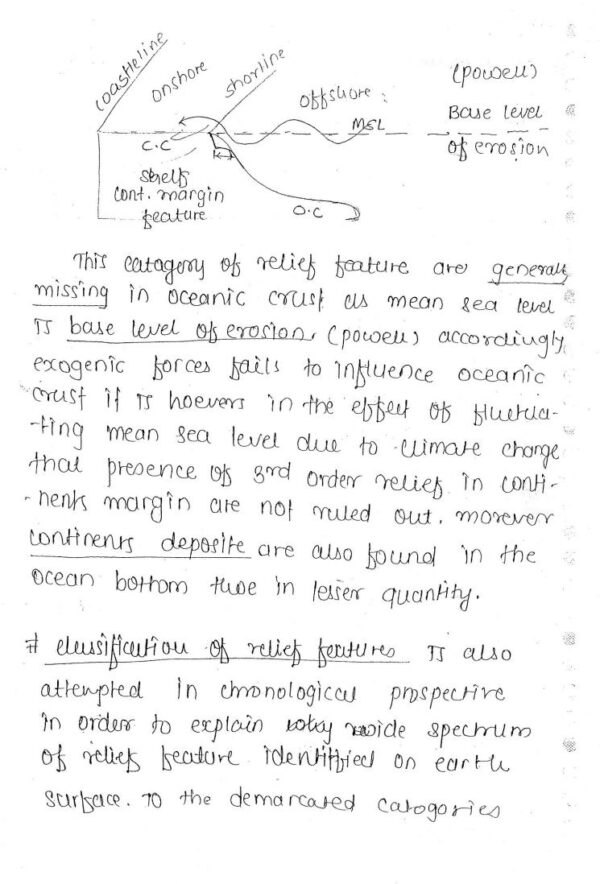 coasteline
onshore
shorline
offshore :
(powell)
Base level
of erosion
MSL
C.C
shelf
cont. margin
feature
O.C
This catagory of relief feature are generally
missing in oceanic crust as mean sea level
is base level of erosion, (powell) accordingly
exogenic forces fails to influence oceanic
crust if is hoevers in the effect of fluctua-
-ting mean sea level due to climate change
that presence of 3rd order relief in conti-
-nents margin are not ruled out. morever
continents deposite are also found in the
ocean bottom in lesser quantity.
# classification of relief features is also
attempted in chronological prospective
in order to explain wide spectrum
of relief feature identified on earth
surface. to the demarcated catogories